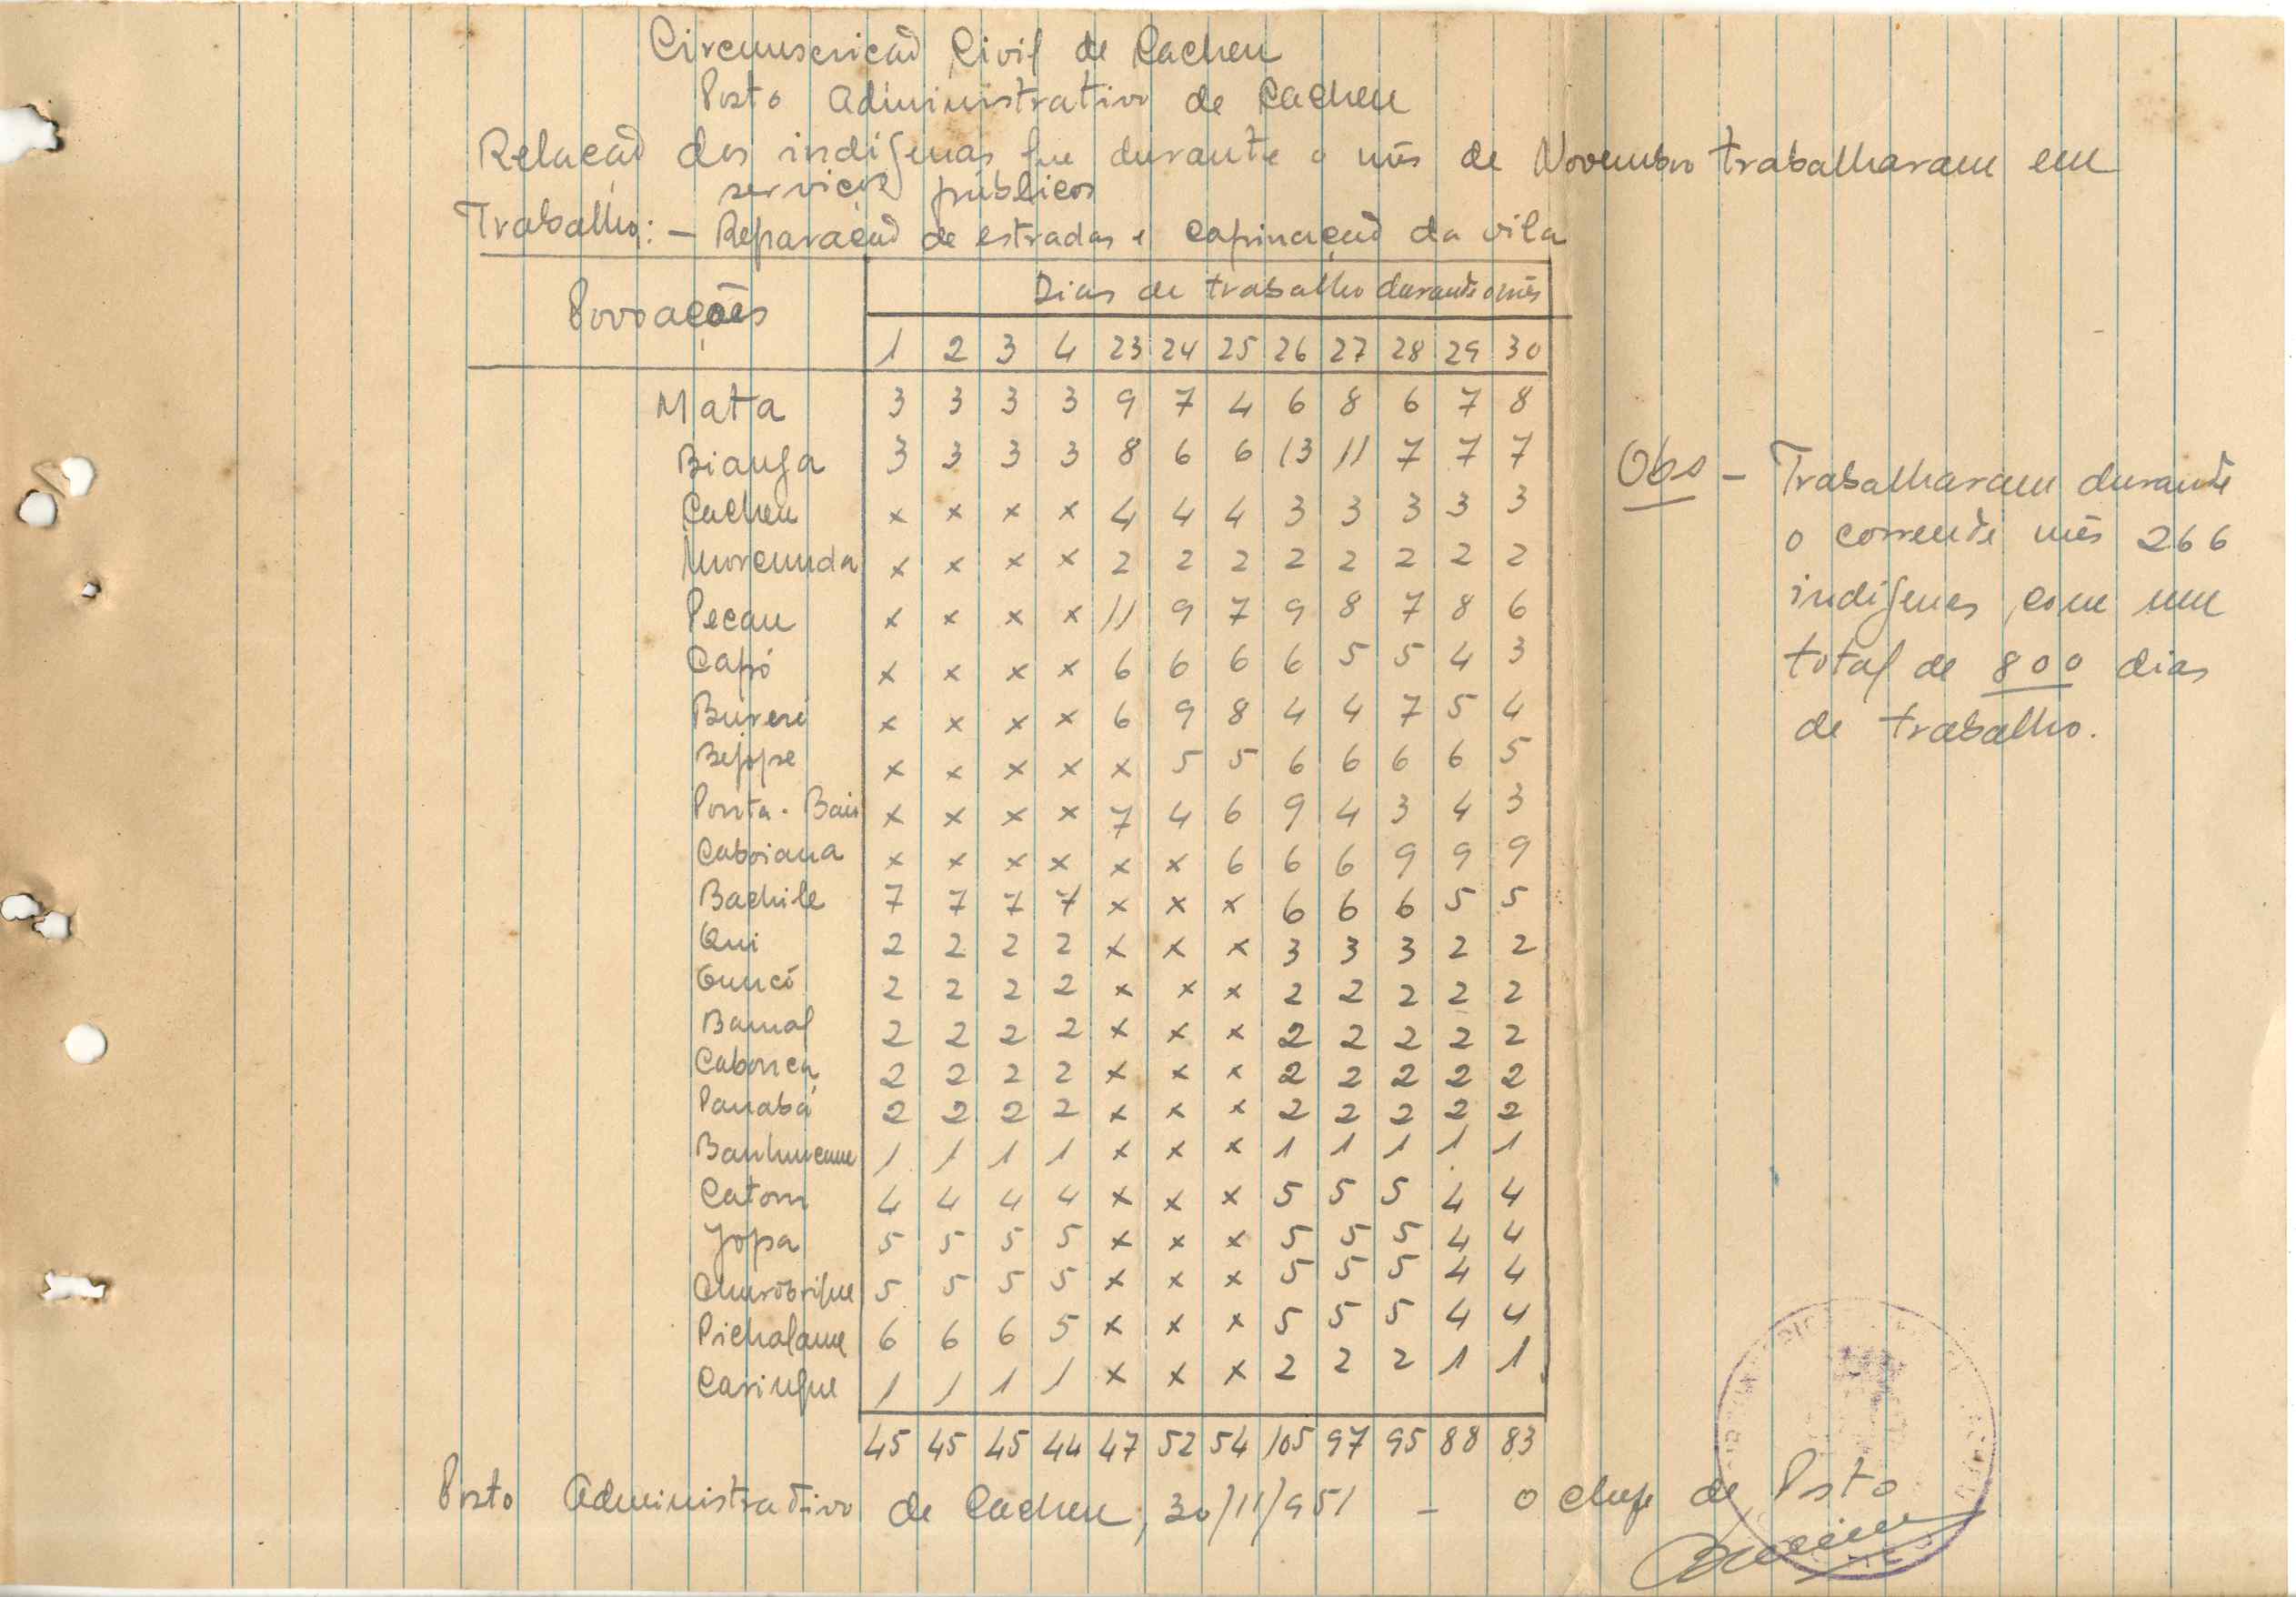 Circunscricão Civil de Cacheu
Posto Administrativo de Cacheu
Relacão dos indígenas que durante o mês de Novembro trabalharam em
serviços públicos
Trabalho: — Reparação de estradas e capinação da vila
Povoações
Dias de trabalho durante o mês
1 2 3 4 23 24 25 26 27 28 29 30
Mata 3 3 3 3 9 7 4 6 8 6 7 8
Bianga 3 3 3 3 8 6 6 13 11 7 7 7
Cacheu x x x x 4 4 4 3 3 3 3 3
Morcunda x x x x 2 2 2 2 2 2 2 2
Pecau x x x x 11 9 7 9 8 7 8 6
Capó x x x x 6 6 6 6 5 5 4 3
Bureré x x x x 6 9 8 4 4 7 5 4
Bejope x x x x x 5 5 6 6 6 6 5
Ponta - x x x x 7 4 6 9 4 3 4 3
Caboiana x x x x x x 6 6 6 9 9 9
Bachile 7 7 7 7 x x x 6 6 6 5 5
Qui 2 2 2 2 x x x 3 3 3 2 2
2 2 2 2 x x x 2 2 2 2 2
Bamal 2 2 2 2 x x x 2 2 2 2 2
2 2 2 2 x x x 2 2 2 2 2
Panabá 2 2 2 2 x x x 2 2 2 2 2
1 1 1 1 x x x 1 1 1 1 1
Catom 4 4 4 4 x x x 5 5 5 4 4
Jopa 5 5 5 5 x x x 5 5 5 4 4
Churobrique 5 5 5 5 x x x 5 5 5 4 4
Pichalame 6 6 6 5 x x x 5 5 5 4 4
Caringue 1 1 1 1 x x x 2 2 2 1 1
45 45 45 44 47 52 54 105 97 95 88 83
Obs — Trabalharam durante
o corrente mês 266
indígenas, com um
total de 800 dias
de trabalho.
Posto Administrativo de Cacheu, 30/11/951 — O chefe de Posto